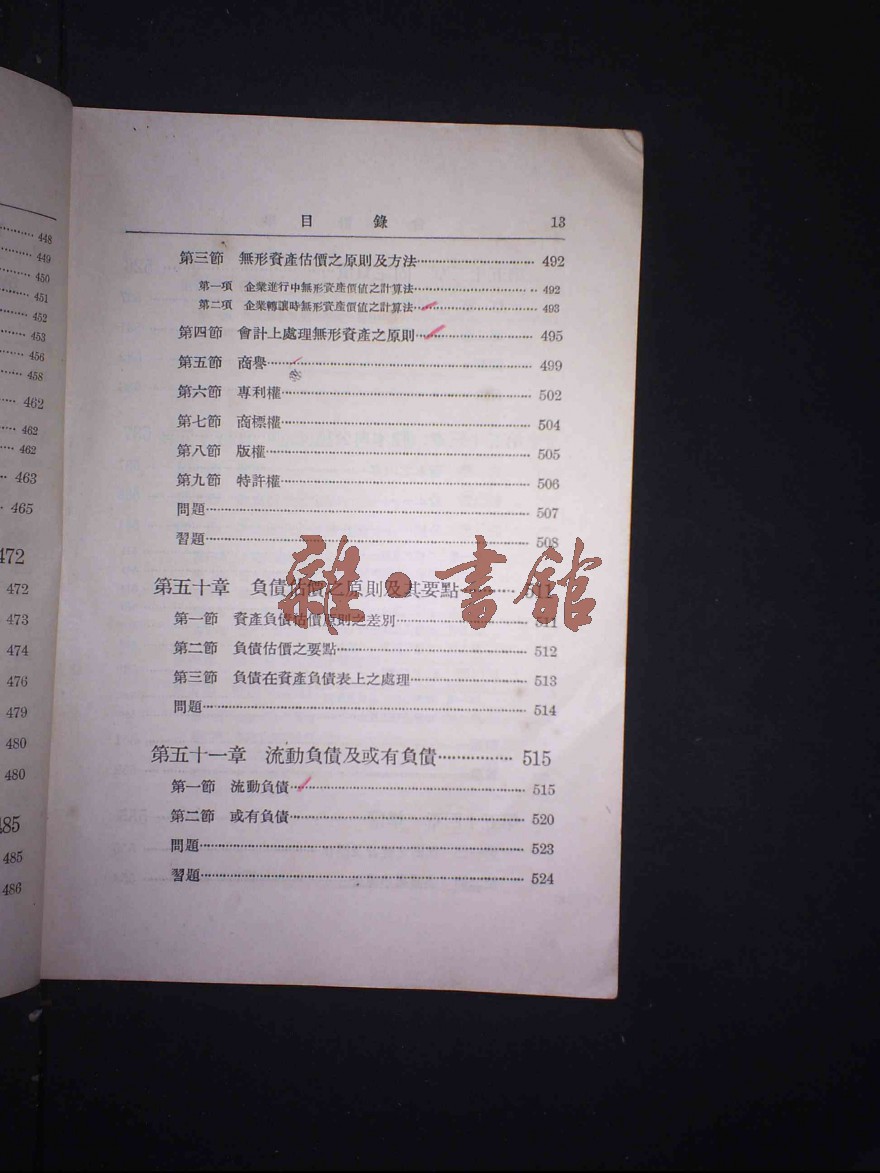 448
449
450
451
452
453
456
458
462
462
462
463
465
472
472
473
474
476
479
480
480
485
485
486
目錄 13
第三節 無形資產估價之原則及方法 492
第一項 企業進行中無形資產價值之計算法 492
第二項 企業轉讓時無形資產價值之計算法 493
第四節 會計上處理無形資產之原則 495
第五節 商譽 499
第六節 專利權 502
第七節 商標權 504
第八節 版權 505
第九節 特許權 506
問題 507
習題 508
第五十章 負債估價之原則及其要點 511
第一節 資產負債估價原則之差別 511
第二節 負債估價之要點 512
第三節 負債在資產負債表上之處理 513
問題 514
第五十一章 流動負債及或有負債 515
第一節 流動負債 515
第二節 或有負債 520
問題 523
習題 524
雜·書館